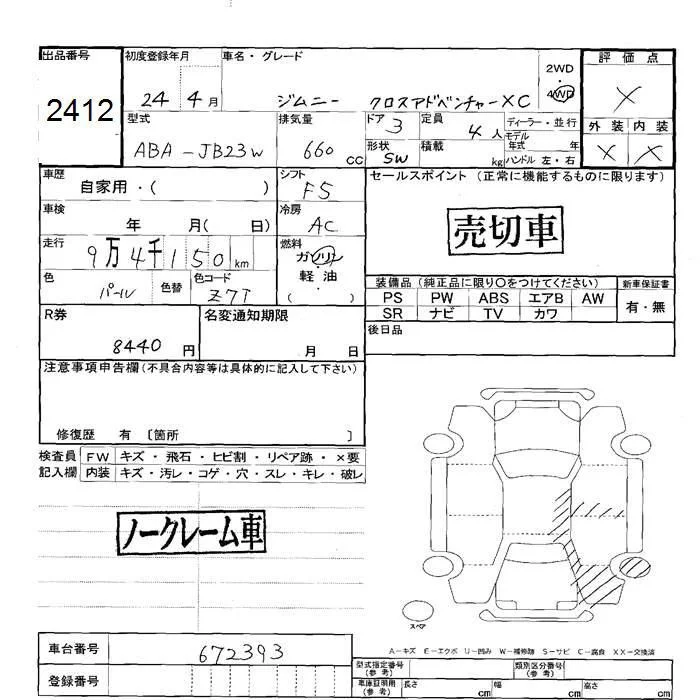 出品番号
2412
初度登録年月
24 4月
車名・グレード
ジムニー クロスアドベンチャーXC
2WD
・
4WD
評価点
X
外装 内装
X X
型式
ABA-JB23W
排気量
660 CC
ドア 3
形状 SW
定員 4人
積載 kg
ディーラー・並行
モデル
年式 年
ハンドル 左・右
車歴
自家用・( )
シフト
F5
車検
年 月( 日)
冷房
AC
走行
9万4千150km
燃料
ガソリン
・
軽油
・
( )
色
パール
色替
色コード
Z7T
R券
8440円
名変通知期限
月 日
セールスポイント (正常に機能するものに限ります)
売切車
装備品(純正品に限り〇をつけてください)
新車保証書
PS PW ABS エアB AW
SR ナビ TV カワ
有・無
後日品
注意事項申告欄(不具合内容等は具体的に記入して下さい)
修復歴 有 〔箇所 〕
検査員
記入欄
FW キズ・飛石・ヒビ割・リペア跡・×要
内装 キズ・汚レ・コゲ・穴・スレ・キレ・破レ
ノークレーム車
スペア
A-キズ E-エクボ U-凹み W-補修跡 S-サビ C-腐食 XX-交換済
車台番号 672393
登録番号
型式指定番号
(参考)
類別区分番号
(参考)
車庫証明用
(参考)
長さ cm
幅 cm
高さ cm